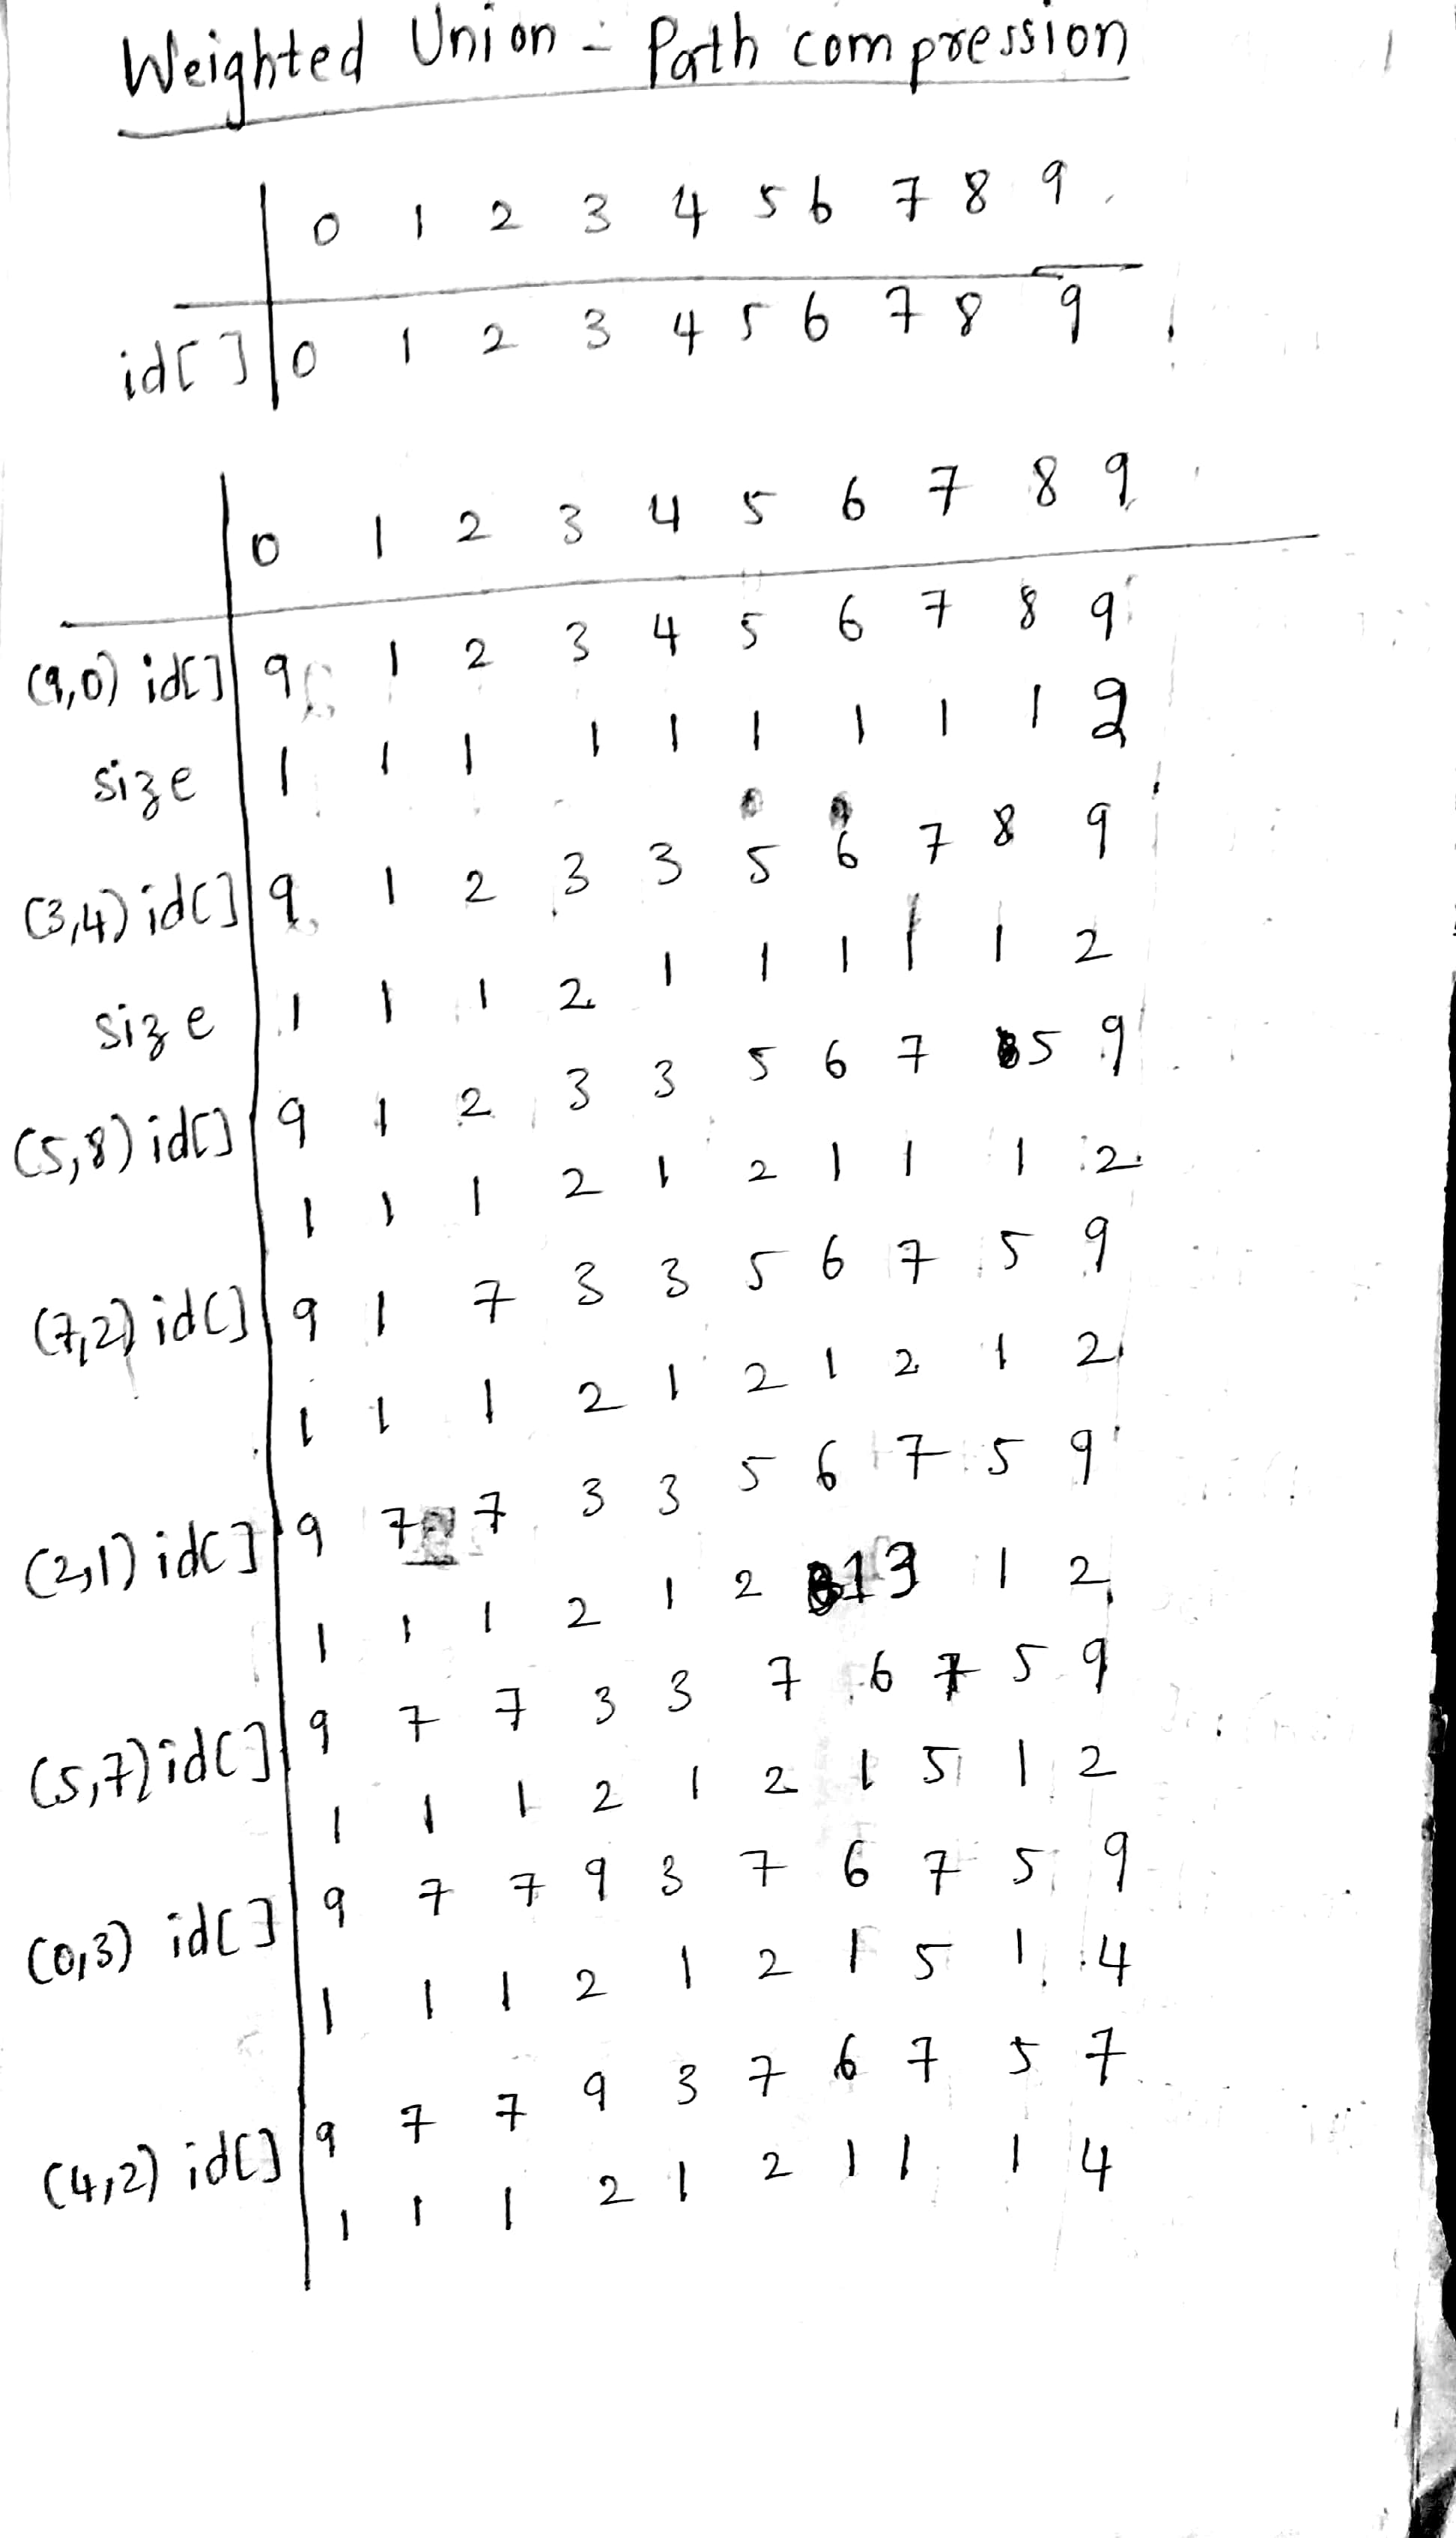 Weighted Union - Path compression
0 1 2 3 4 5 6 7 8 9
id[] 0 1 2 3 4 5 6 7 8 9
0 1 2 3 4 5 6 7 8 9
(9,0) id[] 9 1 2 3 4 5 6 7 8 9
size 1 1 1 1 1 1 1 1 1 2
(3,4) id[] 9 1 2 3 3 5 6 7 8 9
size 1 1 1 2 1 1 1 1 1 2
(5,8) id[] 9 1 2 3 3 5 6 7 5 9
1 1 1 2 1 2 1 1 1 2
(7,2) id[] 9 1 7 3 3 5 6 7 5 9
1 1 1 2 1 2 1 2 1 2
(2,1) id[] 9 7 7 3 3 5 6 7 5 9
1 1 1 2 1 2 1 3 1 2
(5,7) id[] 9 7 7 3 3 7 6 7 5 9
1 1 1 2 1 2 1 5 1 2
(0,3) id[] 9 7 7 9 3 7 6 7 5 9
1 1 1 2 1 2 1 5 1 4
(4,2) id[] 9 7 7 9 3 7 6 7 5 7
1 1 1 2 1 2 1 1 1 4